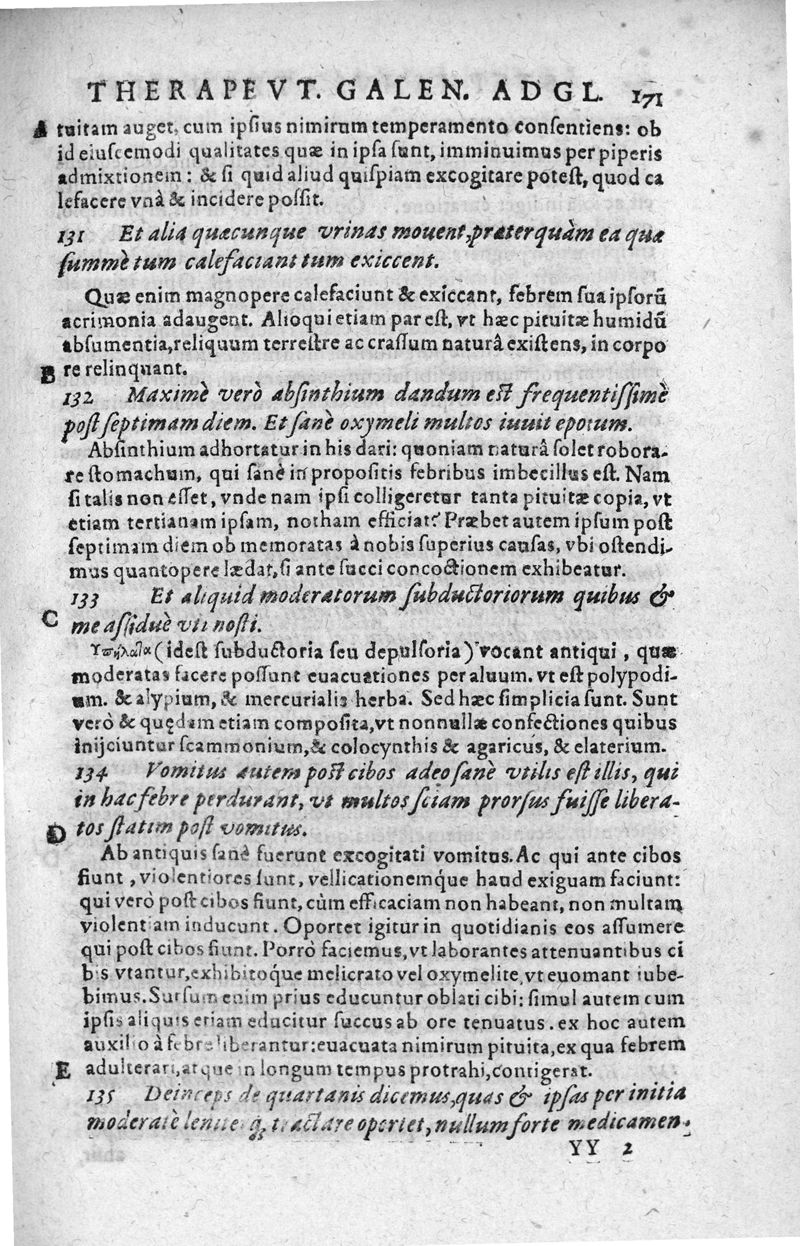 THERAPEVT. GALEN. AD GL. 171
A tuitam auget, cum ipsius nimirum temperamento consentiens: ob
id eiuscemodi qualitates quæ in ipsa sunt, imminuimus per piperis
admixtionem: & si quid aliud quispiam excogitare potest, quod ca
lefacere vnà & incidere possit.
131 Et alia quæcunque vrinas mouent, præterquàm ea quæ
summè tum calefaciant tum exiccent.
Quæ enim magnopere calefaciunt & exiccant, febrem sua ipsorũ
acrimonia adaugent. Alioqui etiam par est, vt hæc pituitæ humidũ
absumentia, reliquum terrestre ac crassum naturâ existens, in corpo
B re relinquant.
132 Maximè verò absinthium dandum est frequentissimè
post septimam diem. Et sanè oxymeli multos iuuit epotum.
Absinthium adhortatur in his dari: quoniam naturâ solet robora-
re stomachum, qui sanè in propositis febribus imbecillus est. Nam
si talis non esset, vnde nam ipsi colligeretur tanta pituitæ copia, vt
etiam tertianam ipsam, notham efficiat? Præbet autem ipsum post
septimam diem ob memoratas à nobis superius causas, vbi ostendi-
mus quantopere lædat, si ante succi concoctionem exhibeatur.
133 Et aliquid moderatorum subductoriorum quibus &
C me assiduè vti nosti.
(idest subductoria seu depulsoria) vocant antiqui, quæ
moderatas facere possunt euacuationes per aluum. vt est polypodi-
um. & alypium, & mercurialis herba. Sed hæc simplicia sunt. Sunt
verò & quędam etiam composita, vt nonnullæ confectiones quibus
inijciuntur scammonium, & colocynthis & agaricus, & elaterium.
134 Vomitus autem post cibos adeo sanè vtilis est illis, qui
in hac febre perdurant, vt multos sciam prorsus fuisse libera-
D tos statim post vomitus.
Ab antiquis sanè fuerunt excogitati vomitus. Ac qui ante cibos
fiunt, violentiores sunt, vellicationemq́ue haud exiguam faciunt:
qui verò post cibos fiunt, cùm efficaciam non habeant, non multam
violentiam inducunt. Oportet igitur in quotidianis eos assumere
qui post cibos fiunt. Porrò faciemus, vt laborantes attenuantibus ci
bis vtantur, exhibitoq́ue melicrato vel oxymelite, vt euomant iube-
bimus. Sursum enim prius educuntur oblati cibi: simul autem cum
ipsis aliquis etiam educitur succus ab ore tenuatus. ex hoc autem
auxilio à febre liberantur: euacuata nimirum pituita, ex qua febrem
E adulterari, atque in longum tempus protrahi, contigerat.
135 Deinceps de quartanis dicemus, quas & ipsas per initia
moderatè leniterq́; tractare oportet, nullum forte medicamen-
YY 2